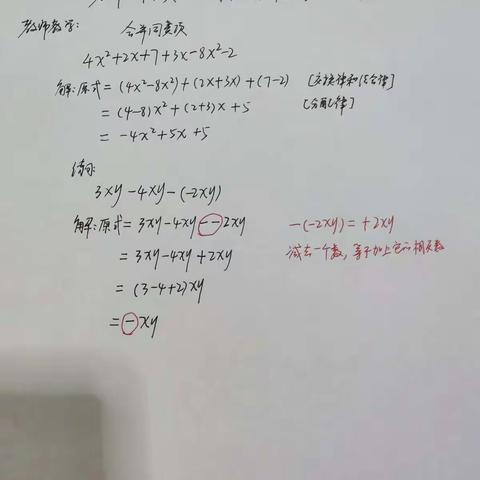 教师教学: 合并同类项
4x²+2x+7+3x-8x²-2
解:原式=(4x²-8x²)+(2x+3x)+(7-2) [交换律和结合律]
=(4-8)x²+(2+3)x+5 [分配律]
=-4x²+5x+5
练习:
3xy-4xy-(-2xy)
解:原式=3xy-4xy--2xy -(-2xy)=+2xy
=3xy-4xy+2xy 减去一个数,等于加上它的相反数
=(3-4+2)xy
=-xy